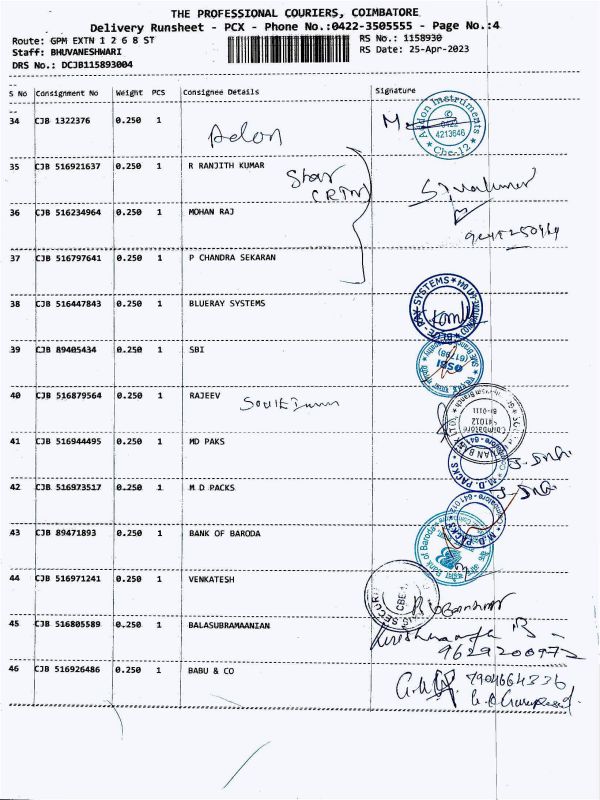 THE PROFESSIONAL COURIERS, COIMBATORE
Delivery Runsheet - PCX - Phone No.:0422-3505555 - Page No.:4
Route: GPM EXTN 1 2 6 8 ST RS No.: 1158930
Staff: BHUVANESHWARI RS Date: 25-Apr-2023
DRS No.: DCJB115893004
S No Consignment No Weight PCS Consignee Details Signature
34 CJB 1322376 0.250 1 Adon
Addon Instruments 0422 4213646 Cbe-12
35 CJB 516921637 0.250 1 R RANJITH KUMAR
Star
36 CJB 516234964 0.250 1 MOHAN RAJ
37 CJB 516797641 0.250 1 P CHANDRA SEKARAN
38 CJB 516447843 0.250 1 BLUERAY SYSTEMS
39 CJB 89405434 0.250 1 SBI
40 CJB 516879564 0.250 1 RAJEEV
41 CJB 516944495 0.250 1 MD PAKS
M.D. PACKS
42 CJB 516973517 0.250 1 M D PACKS
M.D. PACKS
43 CJB 89471893 0.250 1 BANK OF BARODA
Bank of Baroda
44 CJB 516971241 0.250 1 VENKATESH
45 CJB 516805589 0.250 1 BALASUBRAMAANIAN
9629200972
46 CJB 516926486 0.250 1 BABU & CO 7904664336